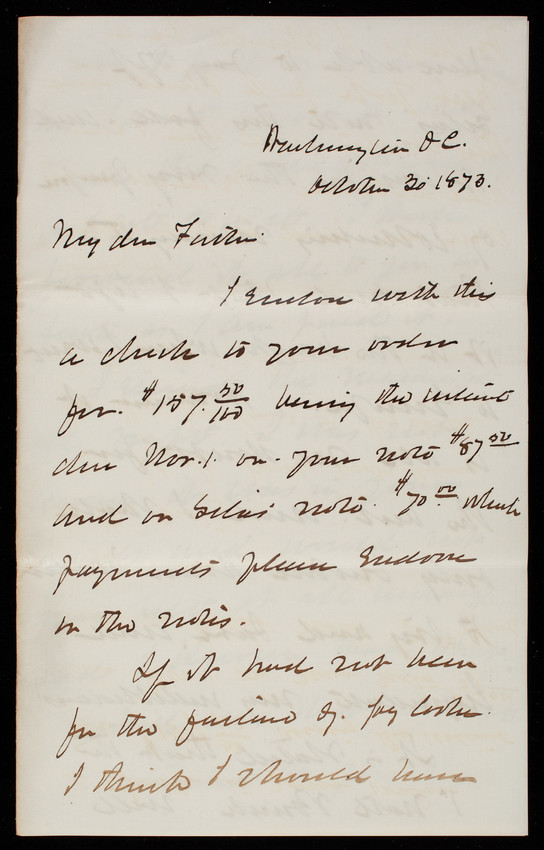 Washington DC.
October 30 1873.
My dear Father.
I enclose with this
a check to your order
for. $157. 50/100 being the interest
due Nov. 1. on your note $87 50
and on Silas' note. $70.00 which
payments please Endorse
on the notes.
If it had not been
for the failure of Jay Cooke.
I think I should have